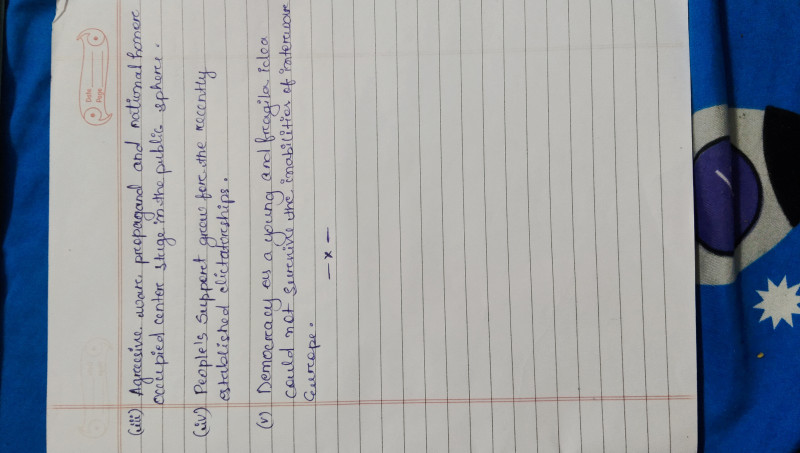 Date
Page
(iii) Agressive ware, propagand and national honore
occupied center stage in the public sphere.
(iv) People's support grew fore the recently
established dictatoreships.
(v) Democracy as a young and fragila idea
could not survive the inabilities of interware
Europe.
—x—